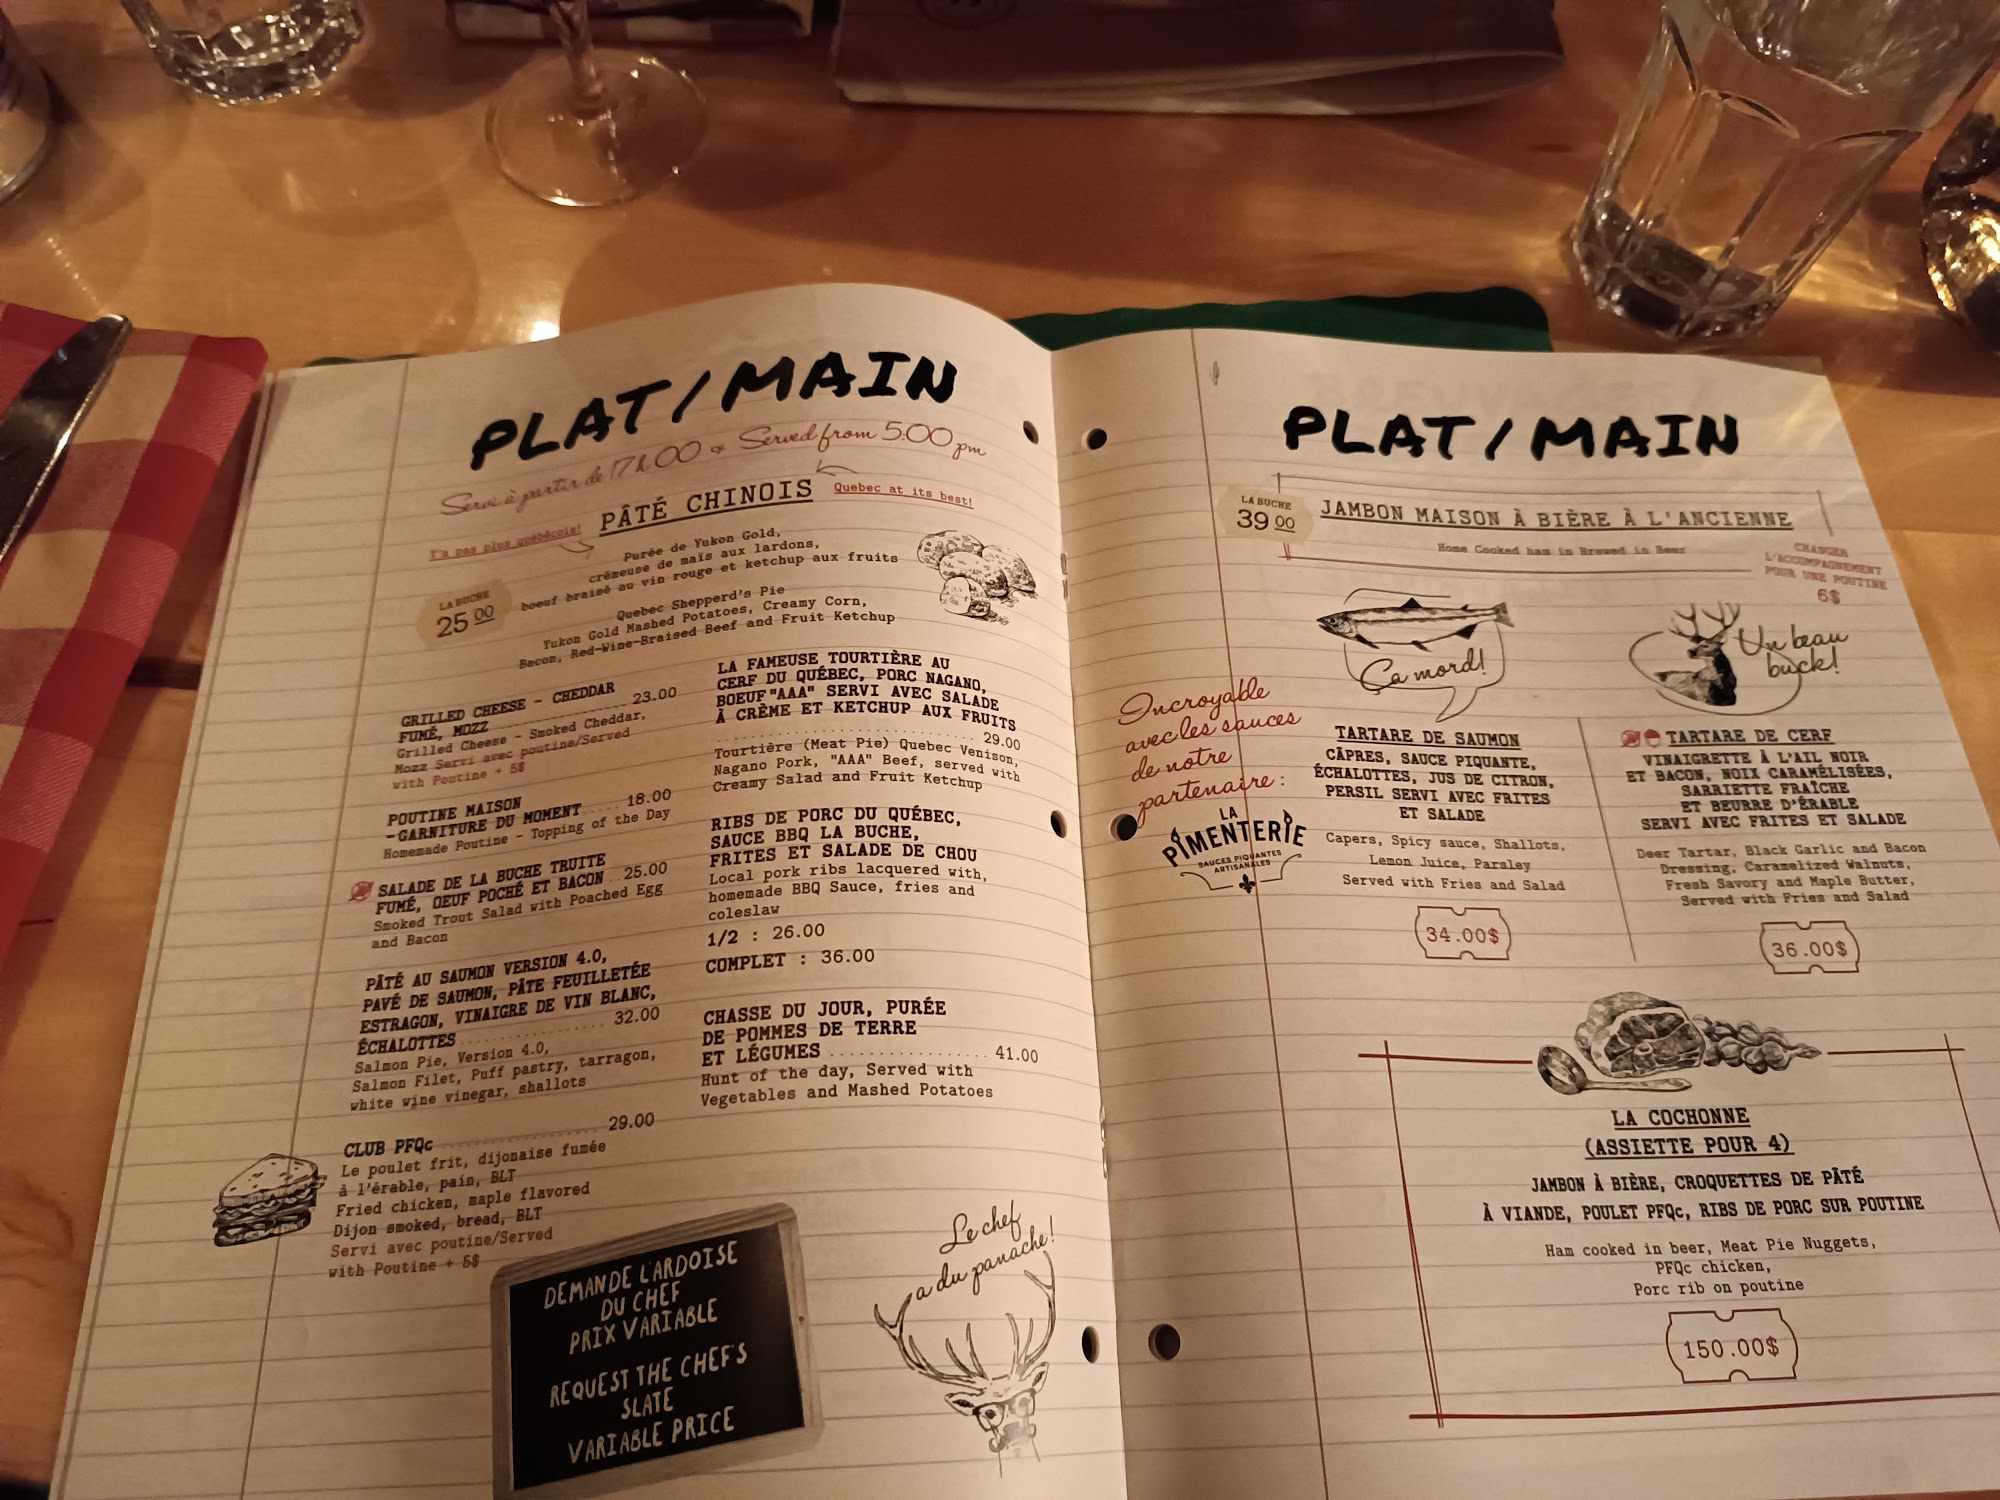 PLAT/MAIN
Servi à partir de 17h00 & Served from 5:00 pm
Y'a pas plus québécois!
PÂTÉ CHINOIS
Quebec at its best!
Purée de Yukon Gold,
crémeuse de maïs aux lardons,
boeuf braisé au vin rouge et ketchup aux fruits
LA BUCHE
25 00
Quebec Shepperd's Pie
Yukon Gold Mashed Potatoes, Creamy Corn,
Bacon, Red-Wine-Braised Beef and Fruit Ketchup
GRILLED CHEESE - CHEDDAR
FUMÉ, MOZZ 23.00
Grilled Cheese - Smoked Cheddar,
Mozz Servi avec poutine/Served
with Poutine + 5$
POUTINE MAISON
-GARNITURE DU MOMENT 18.00
Homemade Poutine - Topping of the Day
SALADE DE LA BUCHE TRUITE
FUMÉ, OEUF POCHÉ ET BACON 25.00
Smoked Trout Salad with Poached Egg
and Bacon
PÂTÉ AU SAUMON VERSION 4.0,
PAVÉ DE SAUMON, PÂTE FEUILLETÉE
ESTRAGON, VINAIGRE DE VIN BLANC,
ÉCHALOTTES 32.00
Salmon Pie, Version 4.0,
Salmon Filet, Puff pastry, tarragon,
white wine vinegar, shallots
CLUB PFQc 29.00
Le poulet frit, dijonaise fumée
à l'érable, pain, BLT
Fried chicken, maple flavored
Dijon smoked, bread, BLT
Servi avec poutine/Served
with Poutine + 5$
LA FAMEUSE TOURTIÈRE AU
CERF DU QUÉBEC, PORC NAGANO,
BOEUF "AAA" SERVI AVEC SALADE
À CRÈME ET KETCHUP AUX FRUITS
29.00
Tourtière (Meat Pie) Quebec Venison,
Nagano Pork, "AAA" Beef, served with
Creamy Salad and Fruit Ketchup
RIBS DE PORC DU QUÉBEC,
SAUCE BBQ LA BUCHE,
FRITES ET SALADE DE CHOU
Local pork ribs lacquered with,
homemade BBQ Sauce, fries and
coleslaw
1/2 : 26.00
COMPLET : 36.00
CHASSE DU JOUR, PURÉE
DE POMMES DE TERRE
ET LÉGUMES 41.00
Hunt of the day, Served with
Vegetables and Mashed Potatoes
DEMANDE L'ARDOISE
DU CHEF
PRIX VARIABLE
REQUEST THE CHEF'S
SLATE
VARIABLE PRICE
Le chef
a du panache!
PLAT/MAIN
LA BUCHE
39 00
JAMBON MAISON À BIÈRE À L'ANCIENNE
Home Cooked ham in Brewed in Beer
CHANGER
L'ACCOMPAGNEMENT
POUR UNE POUTINE
6$
Ça mord!
Un beau
buck!
Incroyable
avec les sauces
de notre
partenaire :
LA
PIMENTERIE
SAUCES PIQUANTES
ARTISANALES
TARTARE DE SAUMON
CÂPRES, SAUCE PIQUANTE,
ÉCHALOTTES, JUS DE CITRON,
PERSIL SERVI AVEC FRITES
ET SALADE
Capers, Spicy sauce, Shallots,
Lemon Juice, Parsley
Served with Fries and Salad
34.00$
TARTARE DE CERF
VINAIGRETTE À L'AIL NOIR
ET BACON, NOIX CARAMÉLISÉES,
SARRIETTE FRAÎCHE
ET BEURRE D'ÉRABLE
SERVI AVEC FRITES ET SALADE
Deer Tartar, Black Garlic and Bacon
Dressing, Caramelized Walnuts,
Fresh Savory and Maple Butter,
Served with Fries and Salad
36.00$
LA COCHONNE
(ASSIETTE POUR 4)
JAMBON À BIÈRE, CROQUETTES DE PÂTÉ
À VIANDE, POULET PFQc, RIBS DE PORC SUR POUTINE
Ham cooked in beer, Meat Pie Nuggets,
PFQc chicken,
Porc rib on poutine
150.00$